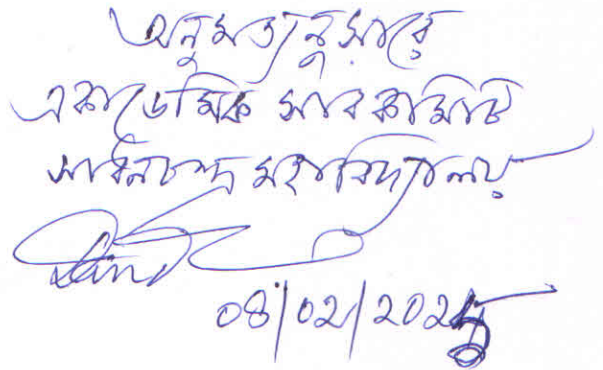 অনুমত্যনুসারে
একাডেমিক সাব কমিটি
মহাবিদ্যালয়
08/02/202